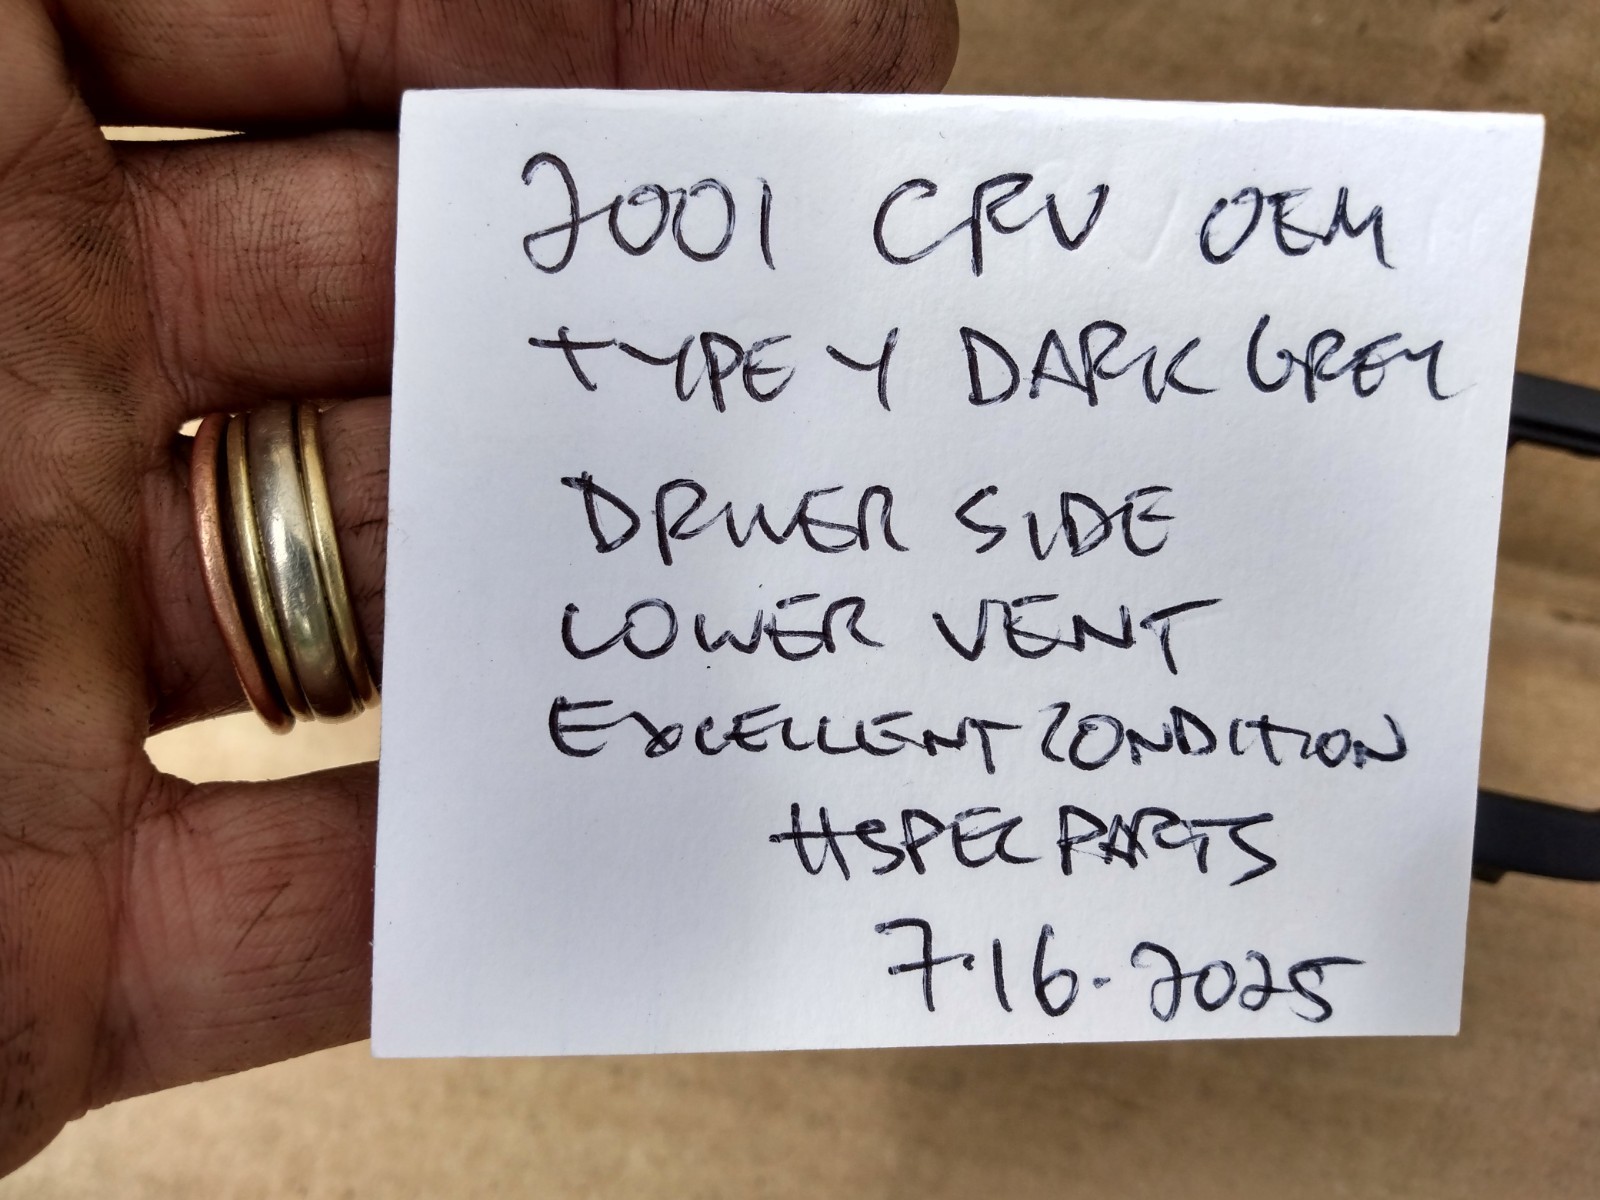 2001 CRV OEM
TYPE Y DARK GREY
DRIVER SIDE
LOWER VENT
EXCELLENT CONDITION
HSPEC PARTS
7·16·2025